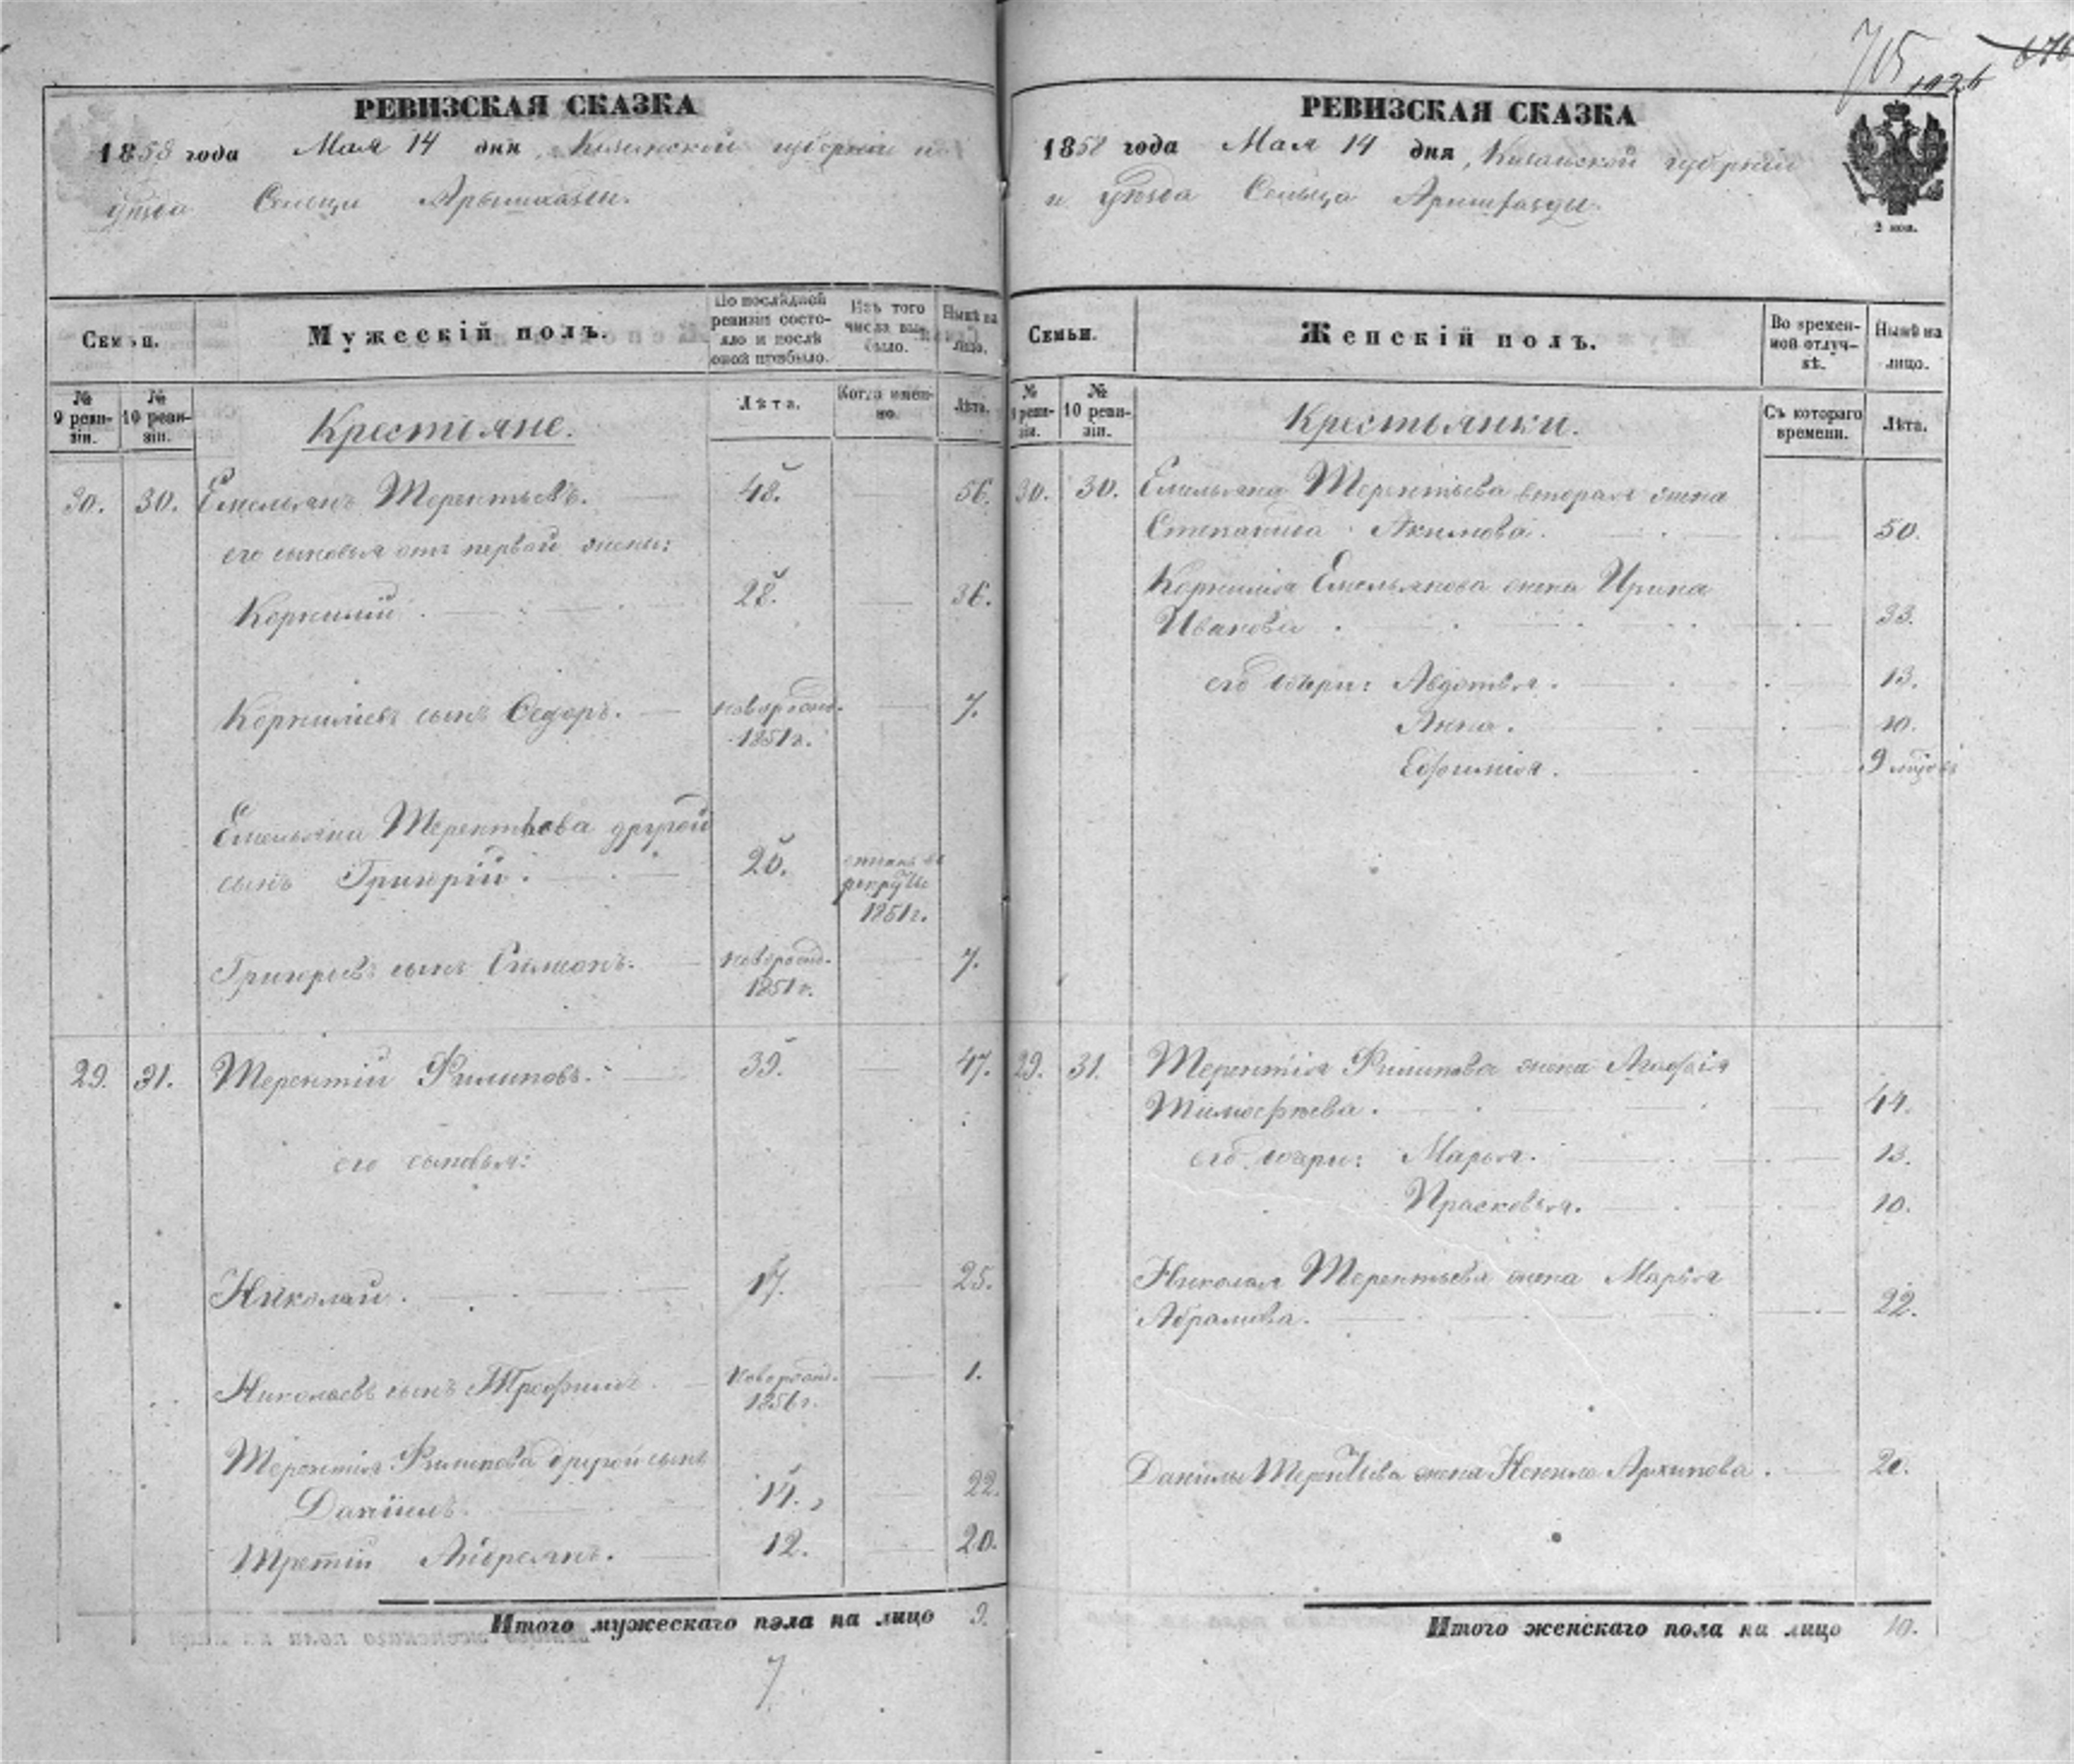 715
1026
676
РЕВИЗСКАЯ СКАЗКА
1858 года Мая 14 дня, Казанской губернiи и
уѣзда Сельца Арышхазды.
Семьи.
Мужескiй полъ.
По послѣдней ревизiи состояло и послѣ оной прибыло.
Изъ того числа выбыло.
Нынѣ на лицо.
№ 9 ревизiи.
№ 10 ревизiи.
Крестьяне.
Лѣта.
Когда именно.
Лѣта.
30. 30. Емельянъ Терентьевъ. 48. 56.
его сыновья отъ первой жены:
Корнилий. 28. 36.
Корнилiевъ сынъ Ѳедоръ. новорожд. 7.
1851 г.
Емельяна Терентьева другой
сынъ Григорiй. 20. отданъ въ
рекруты
1851 г.
Григорьевъ сынъ Симионъ. новорожд. 7.
1851 г.
29. 31. Терентiй Филиповъ. 39. 47.
его сыновья:
Николай. 17. 25.
Николаевъ сынъ Трофимъ. новорожд. 1.
1856 г.
Терентiя Филипова другой сынъ
Данiилъ. 14. 22.
Третiй Андреянъ. 12. 20.
Итого мужескаго пола на лицо 9.
7
РЕВИЗСКАЯ СКАЗКА
1858 года Мая 14 дня, Казанской губернiи
и уѣзда Сельца Арышхазды.
2 коп.
Семьи.
Женскiй полъ.
Во временной отлучкѣ.
Нынѣ на лицо.
№ 9 ревизiи.
№ 10 ревизiи.
Крестьянки.
Съ котораго времени.
Лѣта.
30. 30. Емельяна Терентьева вторая жена
Степанида Акимова. 50.
Корнилiя Емельянова жена Ирина
Иванова. 33.
его дочери: Авдотья. 13.
Анна. 10.
Ефимiя. 9
29. 31. Терентiя Филипова жена Агафiя
Тимофѣева. 44.
его дочери: Марья. 13.
Прасковья. 10.
Николая Терентьева жена Марья
Абрамова. 22.
Данилы Терентьева жена Ненила Архипова. 20.
Итого женскаго пола на лицо 10.